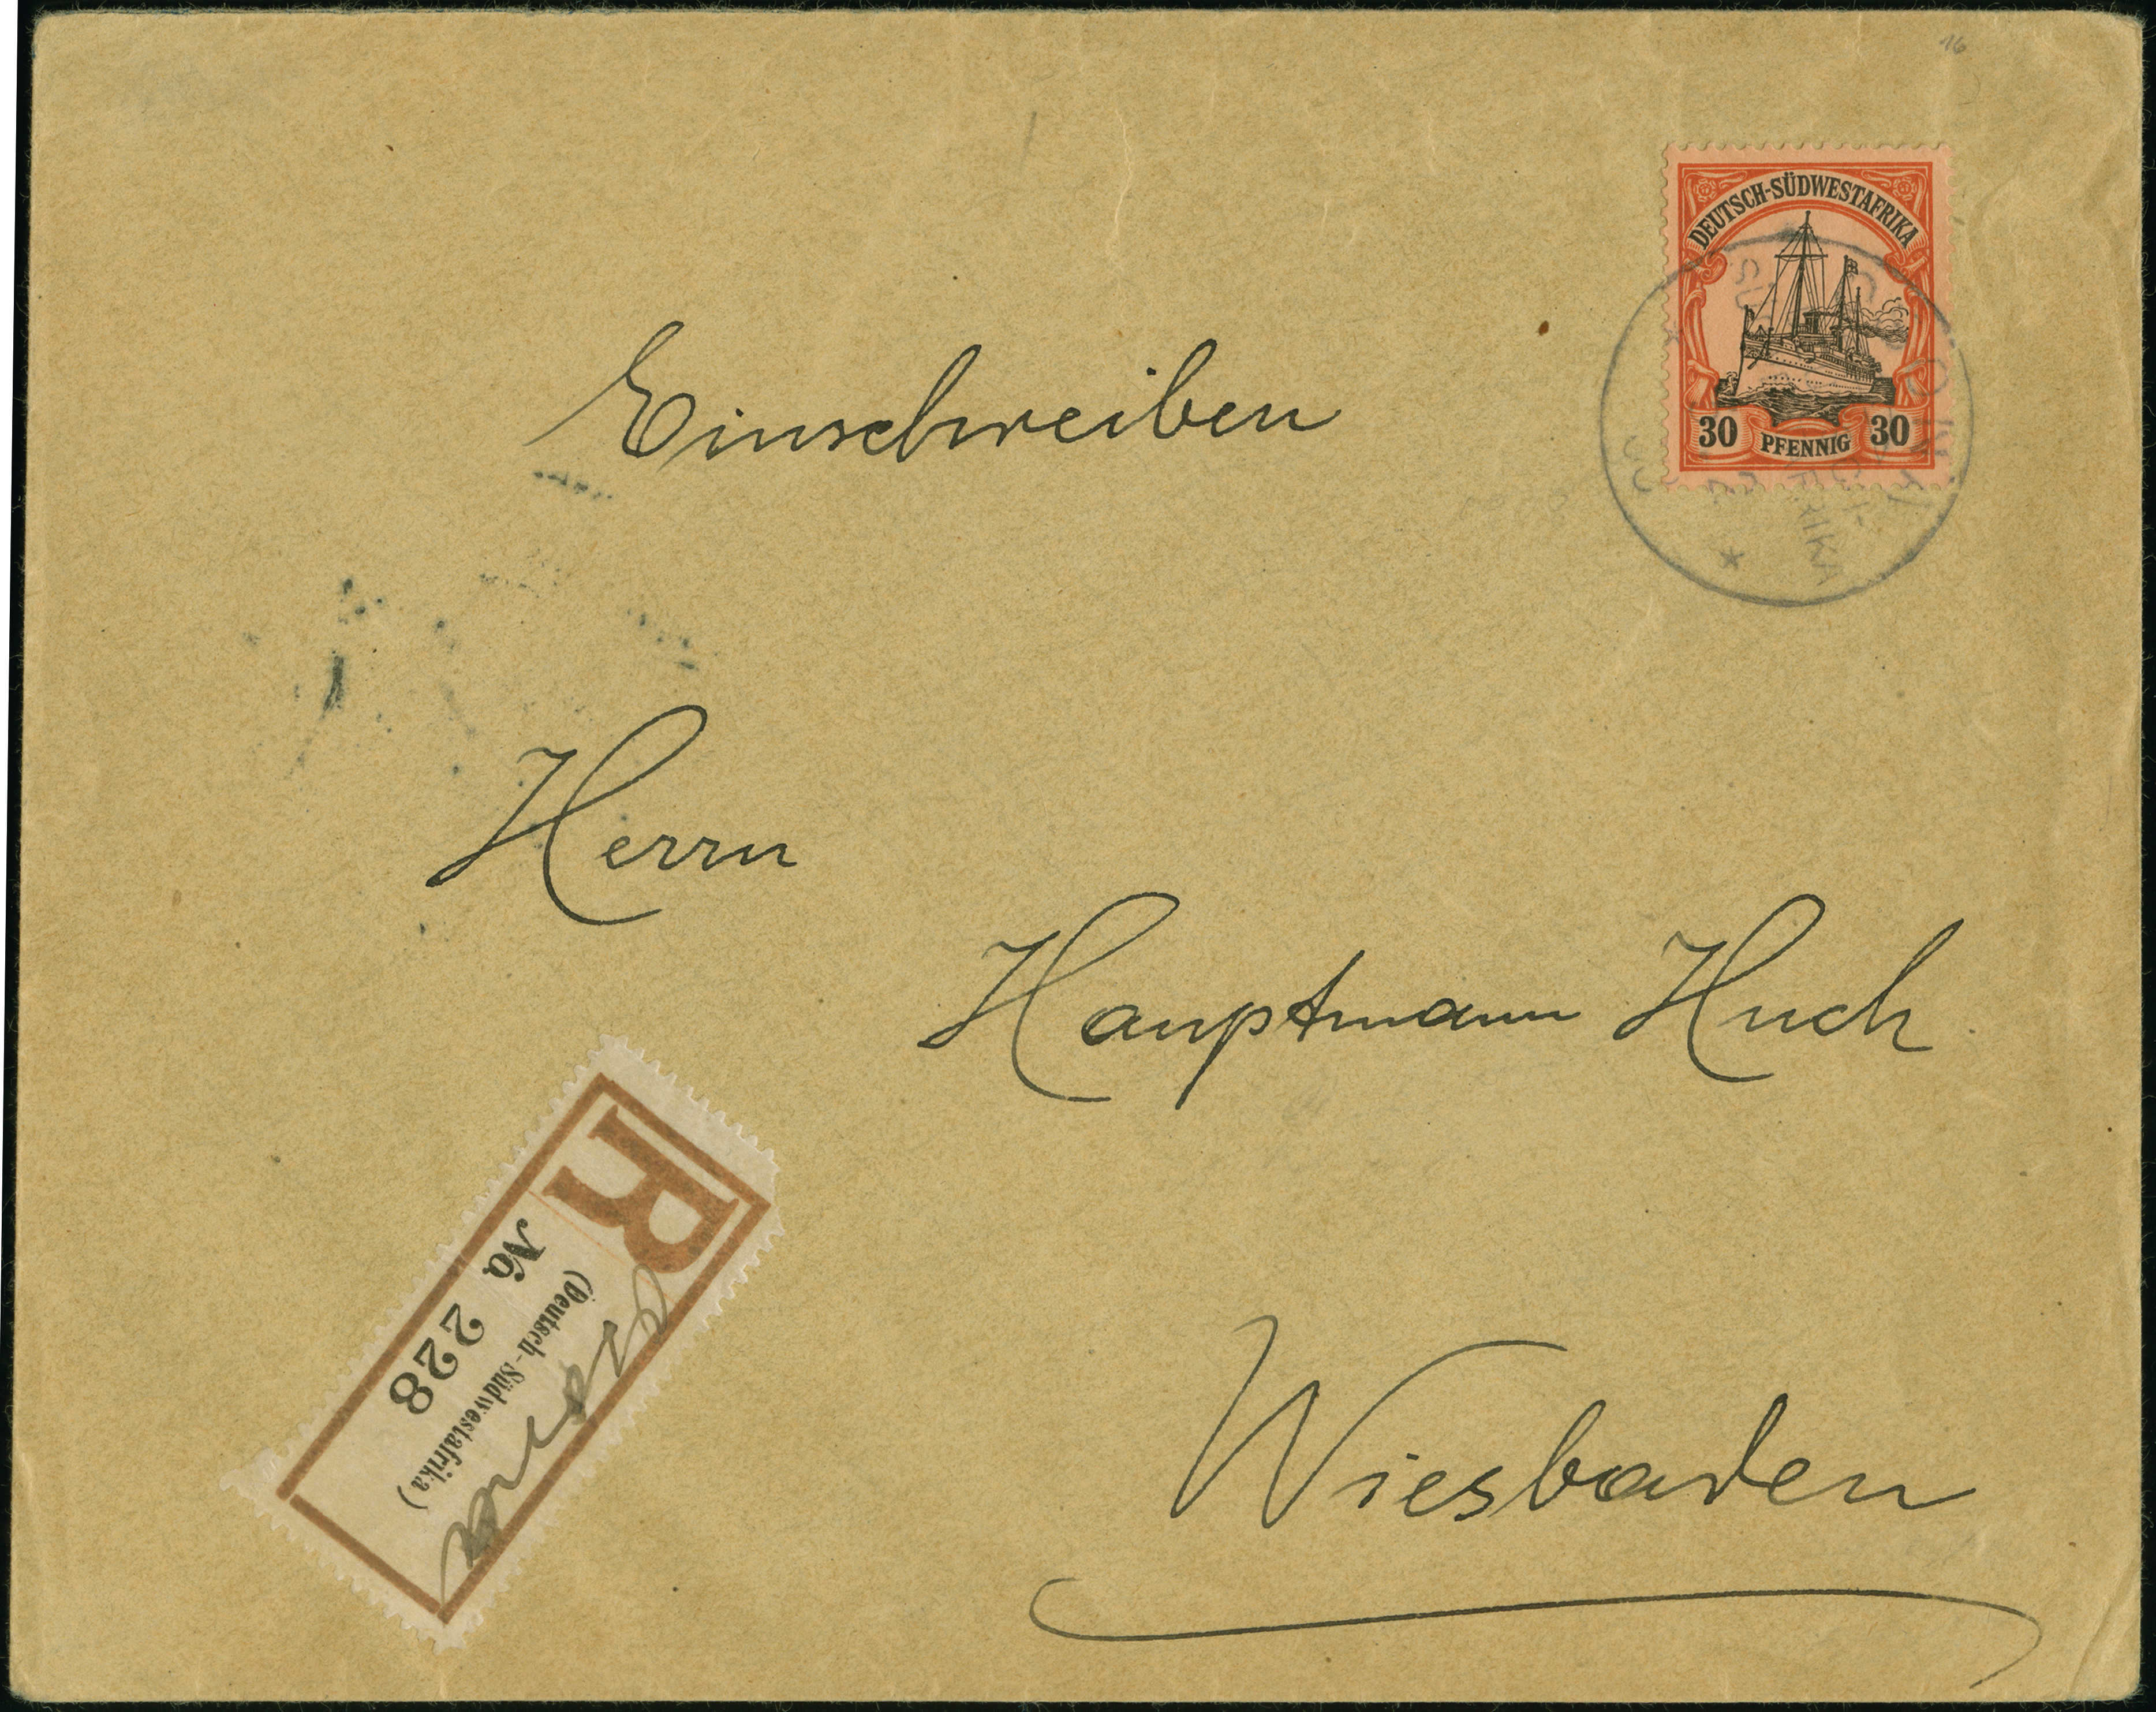 16
DEUTSCH-SÜDWESTAFRIKA
30 PFENNIG 30
Einschreiben
Herrn
Hauptmann Huch
Wiesbaden
R
(Deutsch-Südwestafrika)
No 228